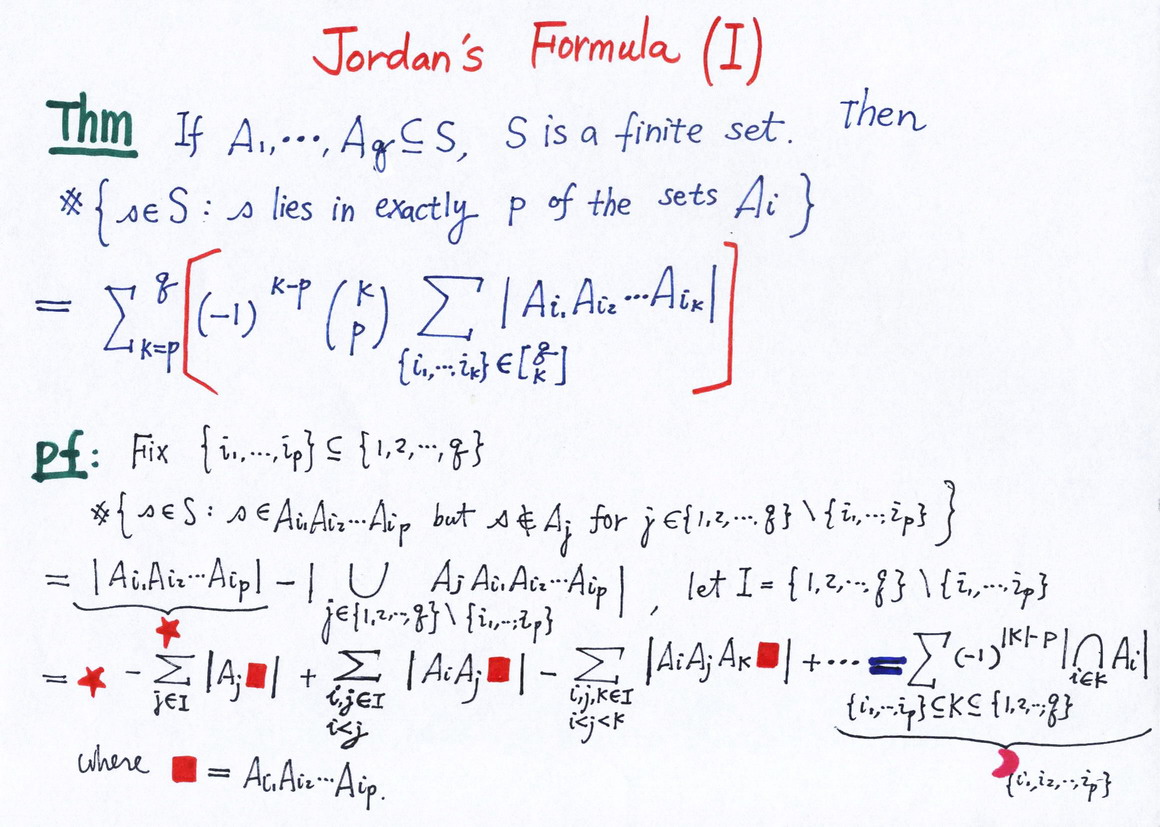 Jordan's Formula (I)
Thm If A₁,⋯,A_q ⊆ S, S is a finite set. Then
#{s∈S : s lies in exactly p of the sets Aᵢ}
= ∑_{k=p}^{q} [(-1)^{k-p} (k p) ∑_{{i₁,⋯,i_k}∈[q k]} |A_{i₁}A_{i₂}⋯A_{i_k}|]
pf: Fix {i₁,⋯,i_p} ⊆ {1,2,⋯,q}
#{s∈S : s∈A_{i₁}A_{i₂}⋯A_{i_p} but s∉A_j for j∈{1,2,⋯,q}\{i₁,⋯,i_p}}
= |A_{i₁}A_{i₂}⋯A_{i_p}| - |∪_{j∈{1,2,⋯,q}\{i₁,⋯,i_p}} A_j A_{i₁}A_{i₂}⋯A_{i_p}|, let I = {1,2,⋯,q}\{i₁,⋯,i_p}
★
= ★ - ∑_{j∈I} |A_j■| + ∑_{i,j∈I i<j} |AᵢA_j■| - ∑_{i,j,k∈I i<j<k} |AᵢA_jA_k■| + ⋯ = ∑_{{i₁,⋯,i_p}⊆K⊆{1,2,⋯,q}} (-1)^{|K|-p} |∩_{i∈K} Aᵢ|
where ■ = A_{i₁}A_{i₂}⋯A_{i_p}.
{i₁,i₂,⋯,i_p}